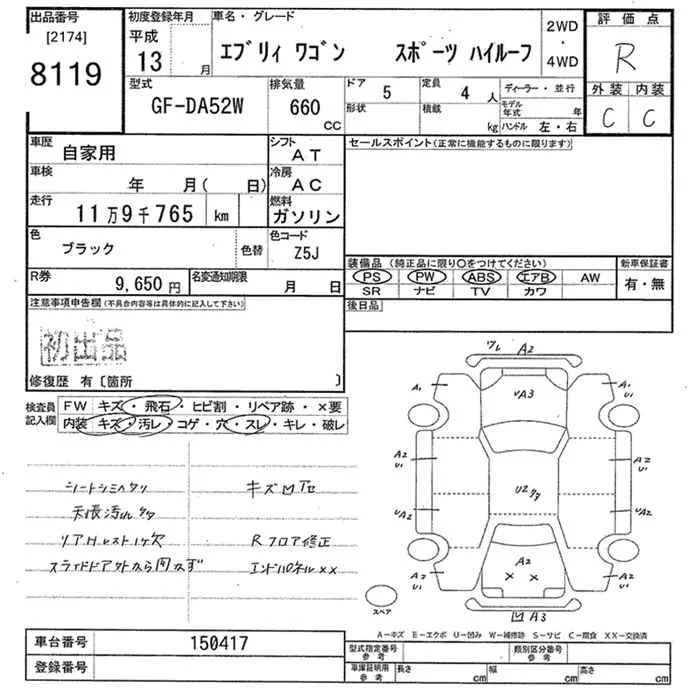 出品番号 初度登録年月 車名・グレード 評価点
[2174] 平成
8119 13 月 エブリィ ワゴン スポーツ ハイルーフ 2WD・4WD R
型式 排気量 ドア 5 定員 4 人 ディーラー・並行 外装 内装
GF-DA52W 660 CC 形状 積載 kg モデル年式 年 C C
ハンドル 左・右
車歴 自家用 シフト AT セールスポイント(正常に機能するものに限ります)
車検 年 月( 日) 冷房 AC
走行 11万9千765 km 燃料 ガソリン
色 ブラック 色替 色コード Z5J
装備品 (純正品に限り○をつけてください) 新車保証書
R券 9,650円 名変通知期限 月 日 PS PW ABS エアB AW 有・無
SR ナビ TV カワ
注意事項申告欄(不具合内容等は具体的に記入して下さい) 後日品
初出品
修復歴 有〔箇所 〕
検査員記入欄 FW キズ・飛石・ヒビ割・リペア跡・×要
内装 キズ・汚レ・コゲ・穴・スレ・キレ・破レ
シートシミヘタリ キズ凹
天張汚レ
リアHレスト1ケ欠 Rフロア修正
スライドドアアウトから開かず エンドパネル××
ワレ A2
A1 UA3 A1
U1
A2 A2
U1 U1
UA2 U2 UA2
A2 A2 A2
U1 × × U1
スペア
凹 A3
A-キズ E-エクボ U-凹み W-補修跡 S-サビ C-腐食 XX-交換済
車台番号 150417 型式指定番号 参考 類別区分番号 参考
登録番号 車庫証明用 参考 長さ cm 幅 cm 高さ cm